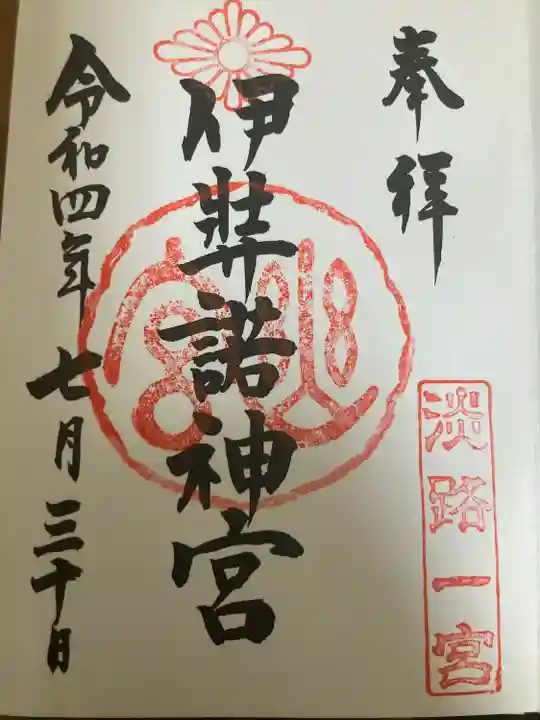 奉拝
淡路一宮
伊弉諾神宮
令和四年七月三十日